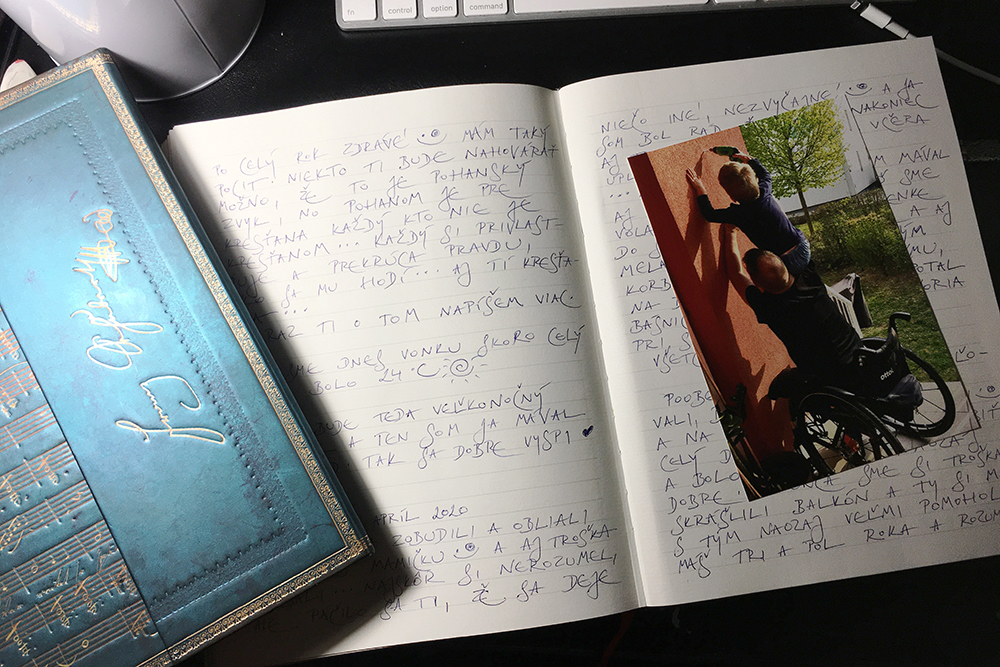 fn
control
option
command
PO CELÝ ROK ZDRAVÉ! MÁM TAKÝ
POCIT NIEKTO TI BUDE NAHOVÁRAŤ
MOŽNO, ŽE TO JE POHANSKÝ
ZVYK, NO POHANOM JE PRE
KRESŤANA KAŽDÝ KTO NIE JE
KRESŤANOM... KAŽDÝ SI PRIVLAST-
A PREKRÚCA PRAVDU,
SA MU HODÍ... AJ TÍ KRESŤA-
RAZ TI O TOM NAPÍŠEM VIAC.
SME DNES VONKU SKORO CELÝ
BOLO 24°C
BUDE TEDA VEĽKONOČNÝ
A TEN SOM JA MÁVAL
TAK SA DOBRE VYSPI
APRÍL 2020
ZOBUDILI A OBLIALI
MAMIČKU A AJ TROŠKA
NAJSKÔR SI NEROZUMEL,
PÁČIL SA TI, ČO SA DEJE
NIEČO INÉ, NEZVYČAJNÉ! A JA
SOM BOL RAD NAKONIEC
AJ VČERA
ÚPL M MÁVAL
... SME
AJ ENKE
VOLA A AJ
DO J ÝM
MELA MU,
KORB OTAL
NA D ÓRIA
BÁSNI
PRI S
VŠET
POOBE
VALI,
A NA
CELÝ D
A BOLO ZA
DOBRE SME SI TROŠKA
SKRÁŠLILI BALKÓN A TY SI M
S TÝM NAOZAJ VEĽMI POMOHOL
MÁŠ TRI A POL ROKA A ROZUM